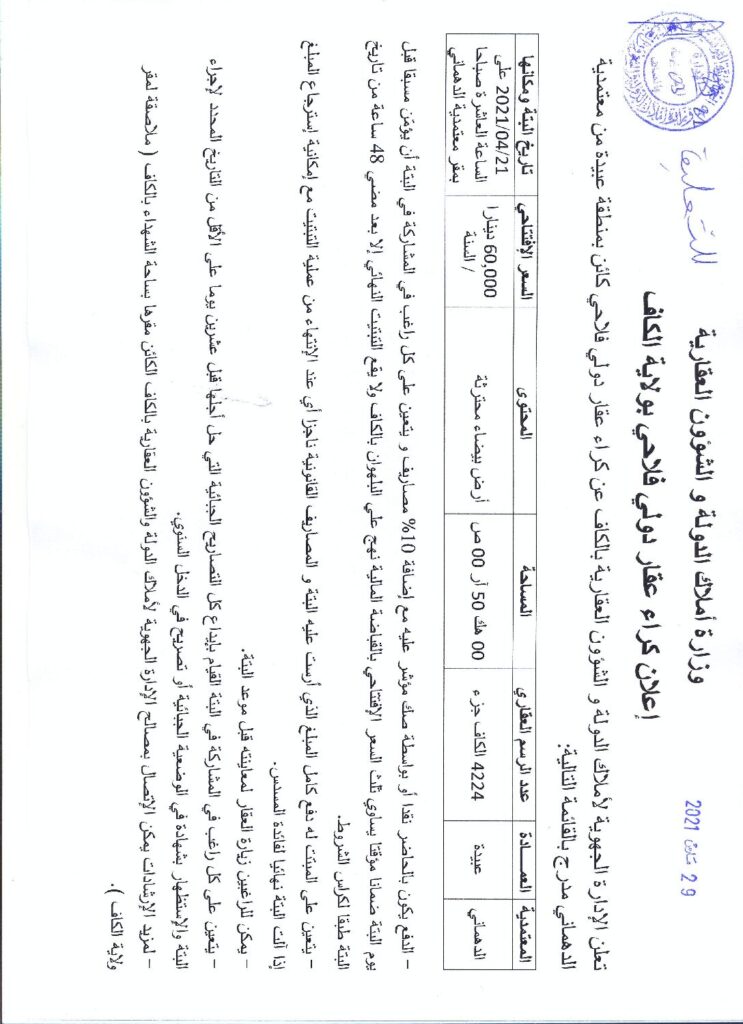 للتعليق
29 مارس 2021
وزارة أملاك الدولة و الشؤون العقارية
إعلان كراء عقار دولي فلاحي بولاية الكاف
تعلن الإدارة الجهوية لأملاك الدولة و الشؤون العقارية بالكاف عن كراء عقار دولي فلاحي كائن بمنطقة عبيدة من معتمدية
الدهماني مدرج بالقائمة التالية:
المعتمدية | العمـــادة | عدد الرسم العقاري | المساحة | المحتوى | السعر الإفتتاحي | تاريخ البتة ومكانها
الدهماني | عبيدة | 4224 الكاف جزء | 00 هك 50 آر 00 ص | أرض بيضاء محترثة | 60,000 دينارا / السنة | 2021/04/21 على الساعة العاشرة صباحا بمقر معتمدية الدهماني
– الدفع يكون بالحاضر نقدا أو بواسطة صك مؤشر عليه مع إضافة 10% مصاريف و يتعين على كل راغب في المشاركة في البتة أن يؤمن مسبقا قبل
يوم البتة ضمانا مؤقتا يساوي ثلث السعر الإفتتاحي بالقباضة المالية نهج علي البلهوان بالكاف ولا يقع التبتيت النهائي إلا بعد مضي 48 ساعة من تاريخ
البتة طبقا لكراس الشروط.
– يتعين على المبتت له دفع كامل المبلغ الذي أرست عليه البتة و المصاريف القانونية ناجزا أي عند الإنتهاء من عملية التبتيت مع إمكانية إسترجاع المبلغ
إذا آلت البتة نهائيا لفائدة المسدس.
– يمكن للراغبين زيارة العقار لمعاينته قبل موعد البتة.
– يتعين على كل راغب في المشاركة في البتة القيام بإيداع كل التصاريح الجبائية التي حل أجلها قبل عشرين يوما على الأقل من التاريخ المحدد لإجراء
البتة والإستظهار بشهادة في الوضعية الجبائية أو تصريح في الدخل السنوي.
– لمزيد الإرشادات يمكن الإتصال بمصالح الإدارة الجهوية لأملاك الدولة والشؤون العقارية بالكاف الكائن مقرها بساحة الشهداء بالكاف ( ملاصقة لمقر
ولاية الكاف ).